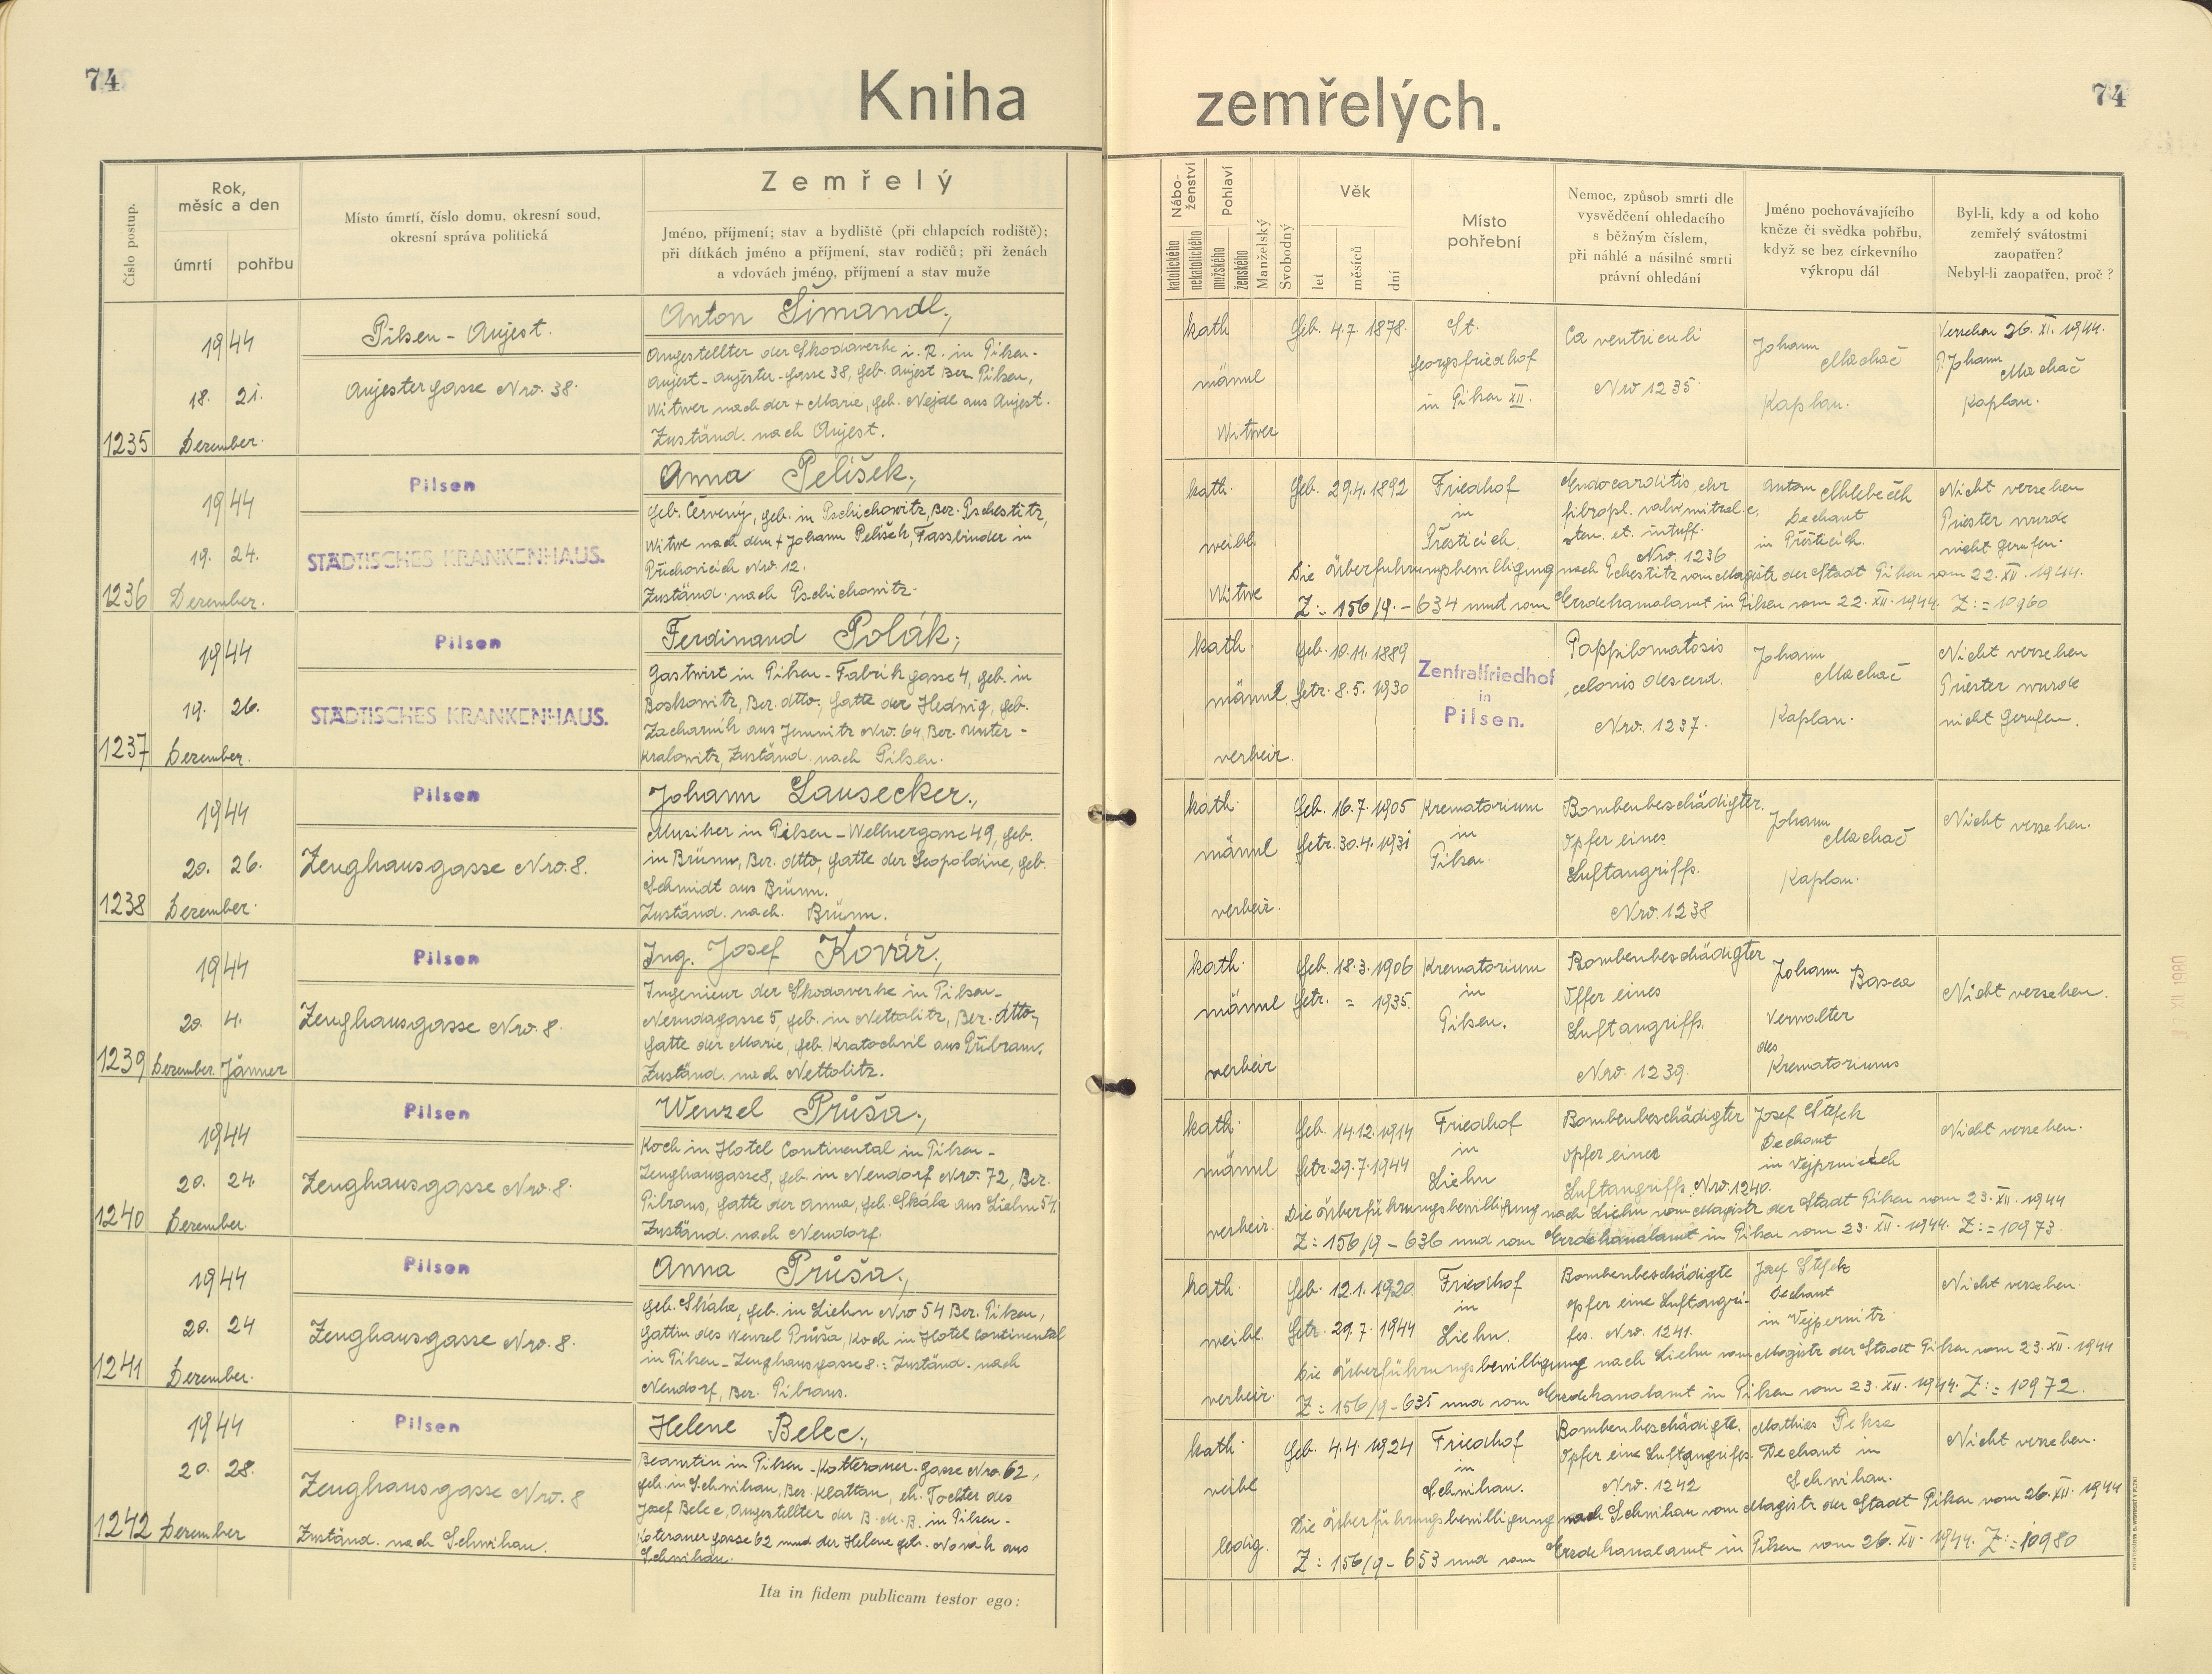 74
Kniha
zemřelých.
74
Číslo postup.
Rok,
měsíc a den
úmrtí
pohřbu
Místo úmrtí, číslo domu, okresní soud,
okresní správa politická
Zemřelý
Jméno, příjmení; stav a bydliště (při chlapcích rodiště);
při dítkách jméno a příjmení, stav rodičů; při ženách
a vdovách jméno, příjmení a stav muže
Nábo-
ženství
katolického
nekatolického
Pohlaví
mužského
ženského
Manželský
Svobodný
Věk
let
měsíců
dní
Místo
pohřební
Nemoc, způsob smrti dle
vysvědčení ohledacího
s běžným číslem,
při náhlé a násilné smrti
právní ohledání
Jméno pochovávajícího
kněze či svědka pohřbu,
když se bez církevního
výkropu dál
Byl-li, kdy a od koho
zemřelý svátostmi
zaopatřen?
Nebyl-li zaopatřen, proč?
1235
1944
18. 21.
Dezember.
Pilsen - Aujest.
Aujestergasse Nro. 38.
Anton Šimandl,
Angestellter der Skodawerke i. R. in Pilsen-
Aujest - Aujester-Gasse 38, geb. Aujest Ber. Pilsen,
Witwer nach der + Marie, geb. Nejdl aus Aujest.
Zuständ. nach Aujest.
kath
männl
Witwer
Geb. 4.7. 1878.
St.
Georgsfriedhof
in Pilsen XII.
Ca ventriculi
Nro 1235.
Johann
Machač
Kaplan.
Versehen 26. XI. 1944.
P. Johann
Machač
Kaplan.
1236
1944
19. 24.
Dezember.
Pilsen
STÄDTISCHES KRANKENHAUS.
Anna Pelíšek,
geb. Červený, geb. in Pschichowitz, Ber. Pschestitz,
Witwe nach dem + Johann Pelíšek, Fassbinder in
Příchovicích Nro. 12.
Zuständ. nach Pschichowitz.
kath.
weibl.
Witwe
Geb. 29.4. 1892
Friedhof
in
Přešticích.
Endocarditis chr
fibropl. valv. mitral. c.
sten. et. insuff.
Nro. 1236
Anton
Dechant
in Přešticích.
Nicht versehen
Priester wurde
nicht gerufen.
Die Überführungsbewilligung nach Pchestitz vom Magistr der Stadt Pilsen vom 22. XII. 1944.
Z: 156/9. - 634 und vom Erzdekanalamt in Pilsen vom 22. XII. 1944. Z: = 10960
1237
1944
19. 26.
Dezember.
Pilsen
STÄDTISCHES KRANKENHAUS.
Ferdinand Polák,
Gastwirt in Pilsen - Fabrikgasse 4, geb. in
Boskowitz, Ber. dtto, Gatte der Hedwig, geb.
Zacharník aus Jemnitz Nro. 64, Ber. Unter-
Kralowitz, Zuständ. nach Pilsen.
kath.
männl.
verheir.
Geb. 10.11. 1889
Getr. 8.5. 1930
Zentralfriedhof
in
Pilsen.
Pappilomatosis
colonis descend.
Nro. 1237.
Johann
Machač
Kaplan.
Nicht versehen
Priester wurde
nicht gerufen.
1238
1944
20. 26.
Dezember.
Pilsen
Zeughausgasse Nro. 8.
Johann Lausecker,
Musiker in Pilsen - Wellnergasse 49, geb.
in Brünn, Ber. dtto, Gatte der Leopoldine, geb.
Schmidt aus Brünn.
Zuständ. nach. Brünn.
kath.
männl
verheir.
Geb. 16.7. 1905
Getr. 30.4. 1931
Krematorium
in
Pilsen.
Bombenbeschädigter.
Opfer eines
Luftangriffs.
Nro. 1238
Johann
Machač
Kaplan.
Nicht versehen.
1239
1944
20. 4.
Dezember. Jänner
Pilsen
Zeughausgasse Nro. 8.
Ing. Josef Kovář,
Ingenieur der Skodawerke in Pilsen-
Nerudagasse 5, geb. in Nettolitz, Ber. dtto,
Gatte der Marie, geb. Kratochvíl aus Přibram.
Zuständ. nach Nettolitz.
kath.
männl
verheir
Geb. 18.3. 1906
Getr. = 1935.
Krematorium
in
Pilsen.
Bombenbeschädigter
Opfer eines
Luftangriffs.
Nro. 1239.
Johann
Verwalter
des
Krematoriums
Nicht versehen.
1240
1944
20. 24.
Dezember.
Pilsen
Zeughausgasse Nro. 8.
Wenzel Průša,
Koch in Hotel Continental in Pilsen-
Zeughausgasse 8, geb. in Neudorf Nro. 72, Ber.
Pilsen, Gatte der Anna, geb. Skála aus Liehn 54.
Zuständ. nach Neudorf.
kath.
männl
verheir.
Geb. 14.12. 1914
Getr. 29.7. 1944
Friedhof
in
Liehn
Bombenbeschädigter
Opfer eines
Luftangriffs. Nro. 1240.
Josef Štefek
Dechant
in Vejprnicích
Nicht versehen.
Die Überführungsbewilligung nach Liehn vom Magistr der Stadt Pilsen vom 23. XII. 1944
Z: 156/9 - 636 und vom Erzdekanalamt in Pilsen vom 23. XII. 1944. Z: = 10973.
1241
1944
20. 24
Dezember.
Pilsen
Zeughausgasse Nro. 8.
Anna Průša,
geb. Skála, geb. in Liehn Nro 54 Ber. Pilsen,
Gattin des Wenzel Průša, Koch in Hotel Continental
in Pilsen - Zeughausgasse 8. Zuständ. nach
Neudorf, Ber.
kath.
weibl.
verheir.
Geb. 12.1. 1920.
Getr. 29.7. 1944
Friedhof
in
Liehn.
Bombenbeschädigte
Opfer eine Luftangri-
fes. Nro. 1241.
Josef Štefek
Dechant
in Vejpernitz
Nicht versehen.
Die Überführungsbewilligung nach Liehn vom Magistr der Stadt Pilsen vom 23. XII. 1944
Z: 156/9 - 635 und vom Erzdekanalamt in Pilsen vom 23. XII. 1944. Z: = 10972.
1242
1944
20. 28.
Dezember
Pilsen
Zeughausgasse Nro. 8
Zuständ. nach Schwihau.
Helene Belec,
Beamtin in Pilsen - Kotterauer. Gasse Nro. 62,
geb. in Schwihau, Ber. Klattau, eh. Tochter des
Josef Belec, Angestellter der B. M. B. in Pilsen-
Koterauergasse 62 und der Helene geb. Novák aus
Schwihau.
kath.
weibl
ledig.
Geb. 4.4. 1924
Friedhof
in
Schwihau.
Bombenbeschädigte.
Opfer eine Luftangrifes.
Nro. 1242
Mathies
Dechant in
Schwihau.
Nicht versehen.
Die Überführungsbewilligung nach Schwihau vom Magistr der Stadt Pilsen vom 26. XII. 1944
Z: 156/9 - 653 und vom Erzdekanalamt in Pilsen vom 26. XII. 1944. Z: = 10980
Ita in fidem publicam testor ego: